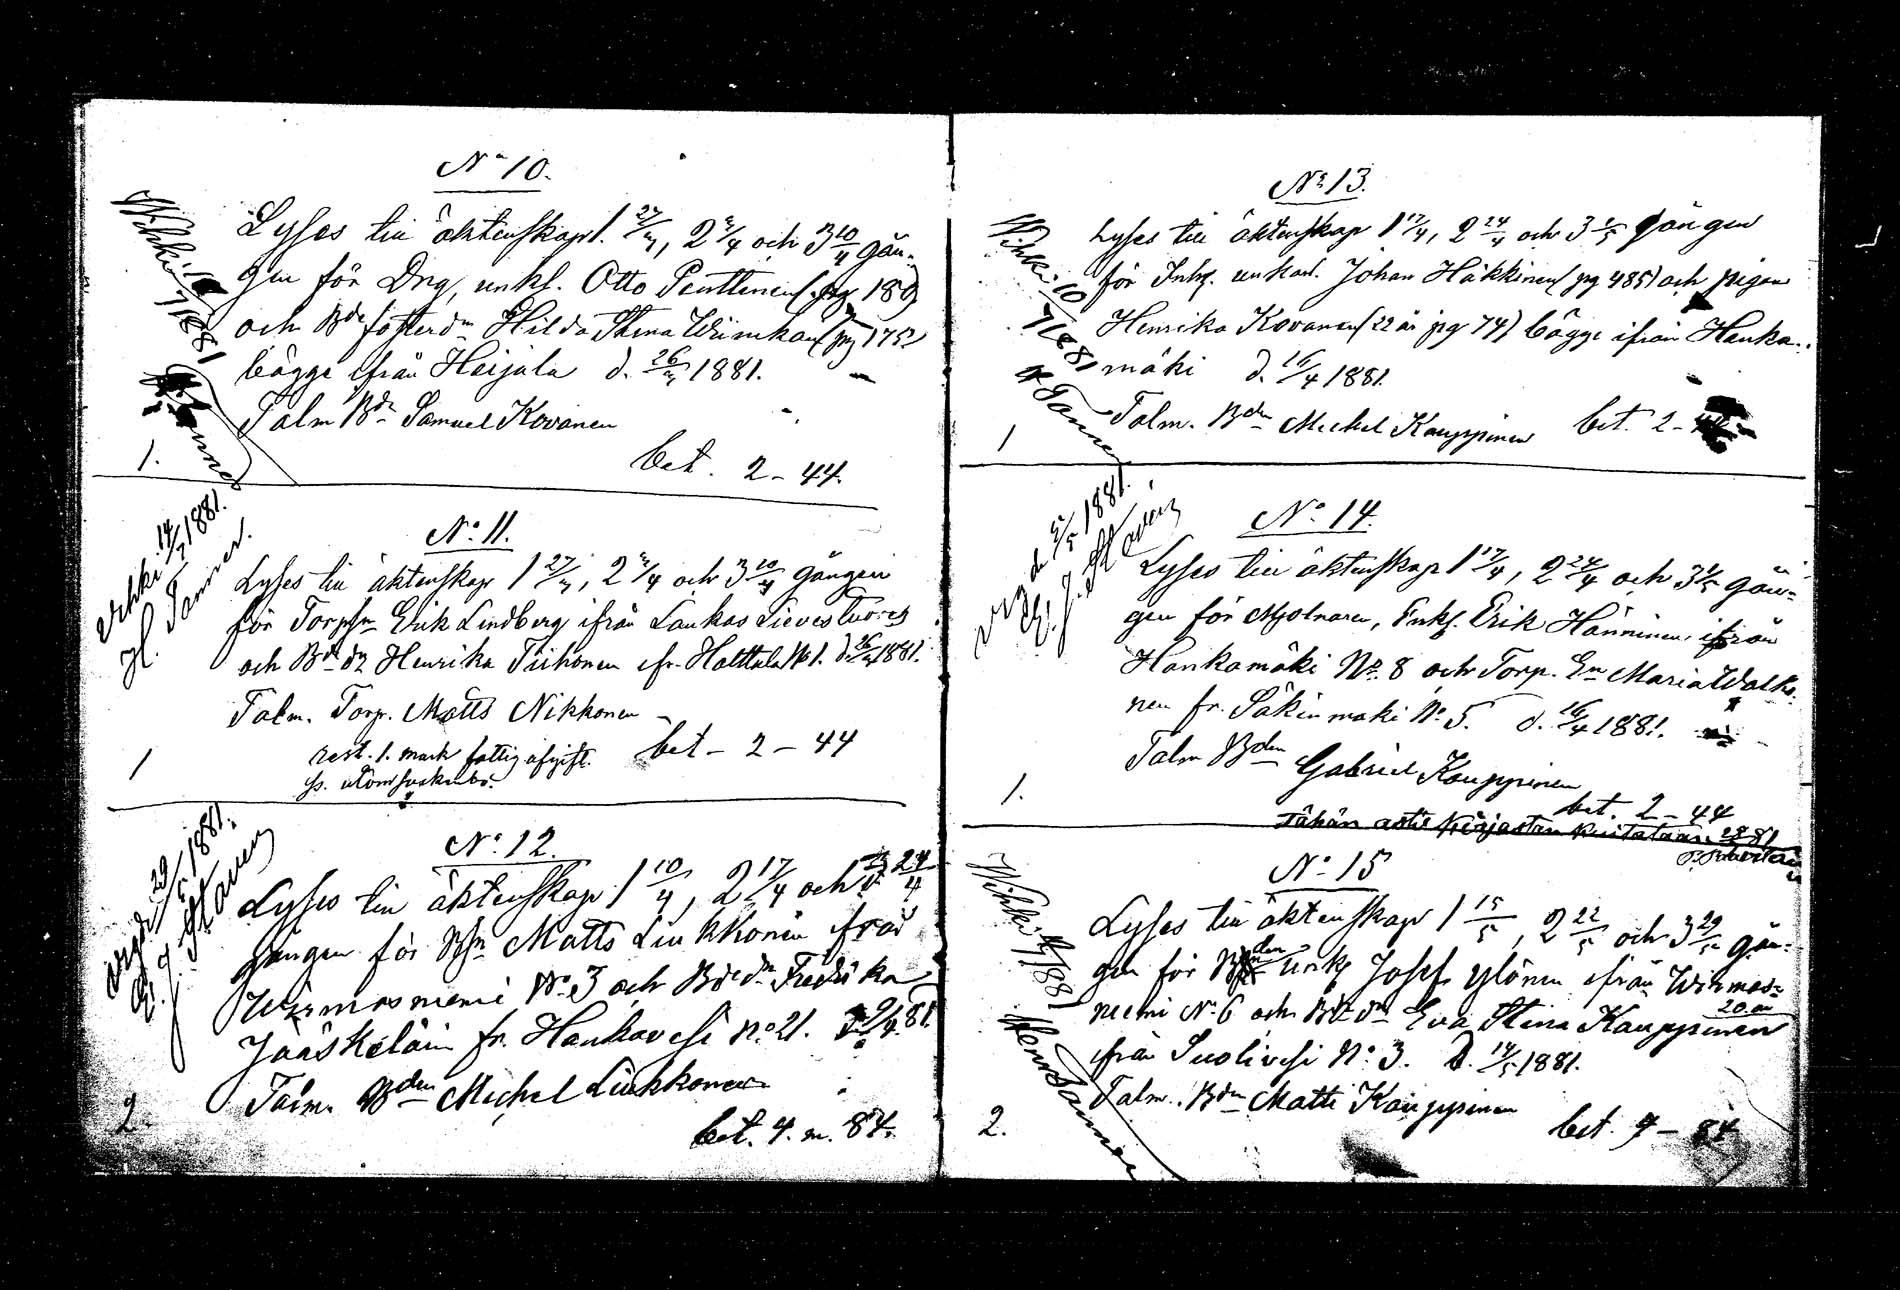 No 10.
Lyses till äktenskap 1. 27/3, 2 3/4 och 3 10/4 gån-
gen för Drg, unkl. Otto Penttinen (pg 189)
och Bde fosterdn Hilda Stina Wiinikan (pg 175)
bägge ifrån Heijala d. 26/3 1881.
Talm Bdn Samuel Kovanen
1.
bet. 2 - 44.
Wihki 10/7 1881
H. Tanner
No 11.
Lyses till äktenskap 1 27/3, 2 3/4 och 3 10/4 gången
för Torpsn Erik Lindberg ifrån Laukas Lievestuores
och Bde dn Henrika Tiihonen ifr. Halttula No 1. d. 26/3 1881.
Talm. Torp. Matts Nikkonen
rest. 1. mark fattig afgift.
bet - 2 - 44
1
Vihki 14/7 1881.
H. Tanner.
No 12.
Lyses till äktenskap 1 10/4, 2 17/4 och 24/4
gången för Bsn Matts Liukkonen från
Wirmasniemi No 3 och Bde dn Fredrika
Jääskeläin fr. Hankavesi No 21. 9/4 81.
Talm. Bden Michel Liukkonen
2.
bet. 4. m. 84.
29/5 1881.
No 13.
Lyses till äktenskap 1 17/4, 2 24/4 och 3 1/5 gången
för Inhg. unkarl. Johan Häkkinen (pg 485) och pigan
Henrika Kovanen (22 år pg 74) bägge ifrån Hanka-
mäki d. 16/4 1881.
Talm. Bden Michel Kauppinen bet. 2 - 44
1
Wihki 10/7 1881
H Tanner
No 14.
Lyses till äktenskap 1 17/4, 2 24/4 och 3 1/5 gån-
gen för Mjolnaren, Enkl. Erik Hänninen ifrån
Hankamäki No 8 och Torp. En Maria Walko-
nen fr. Säkinmäki No 5. d. 16/4 1881.
Talm Bden Gabriel Kauppinen
1.
bet. 2 - 44
5/5 1881.
Tähän asti kirjastan kuitataan 28 81
No 15
Lyses till äktenskap 1 15/5, 2 22/5 och 3 29/5 gån-
gen för Bden unkl Josef Ylönen ifrån Wirmas-
niemi No 6 och Bde dn Eva Stina Kauppinen
20 år
ifrån Suolivesi No 3. d. 14/5 1881.
Talm. Bden Matti Kauppinen
2.
bet. 4 - 84
Henr Tanner